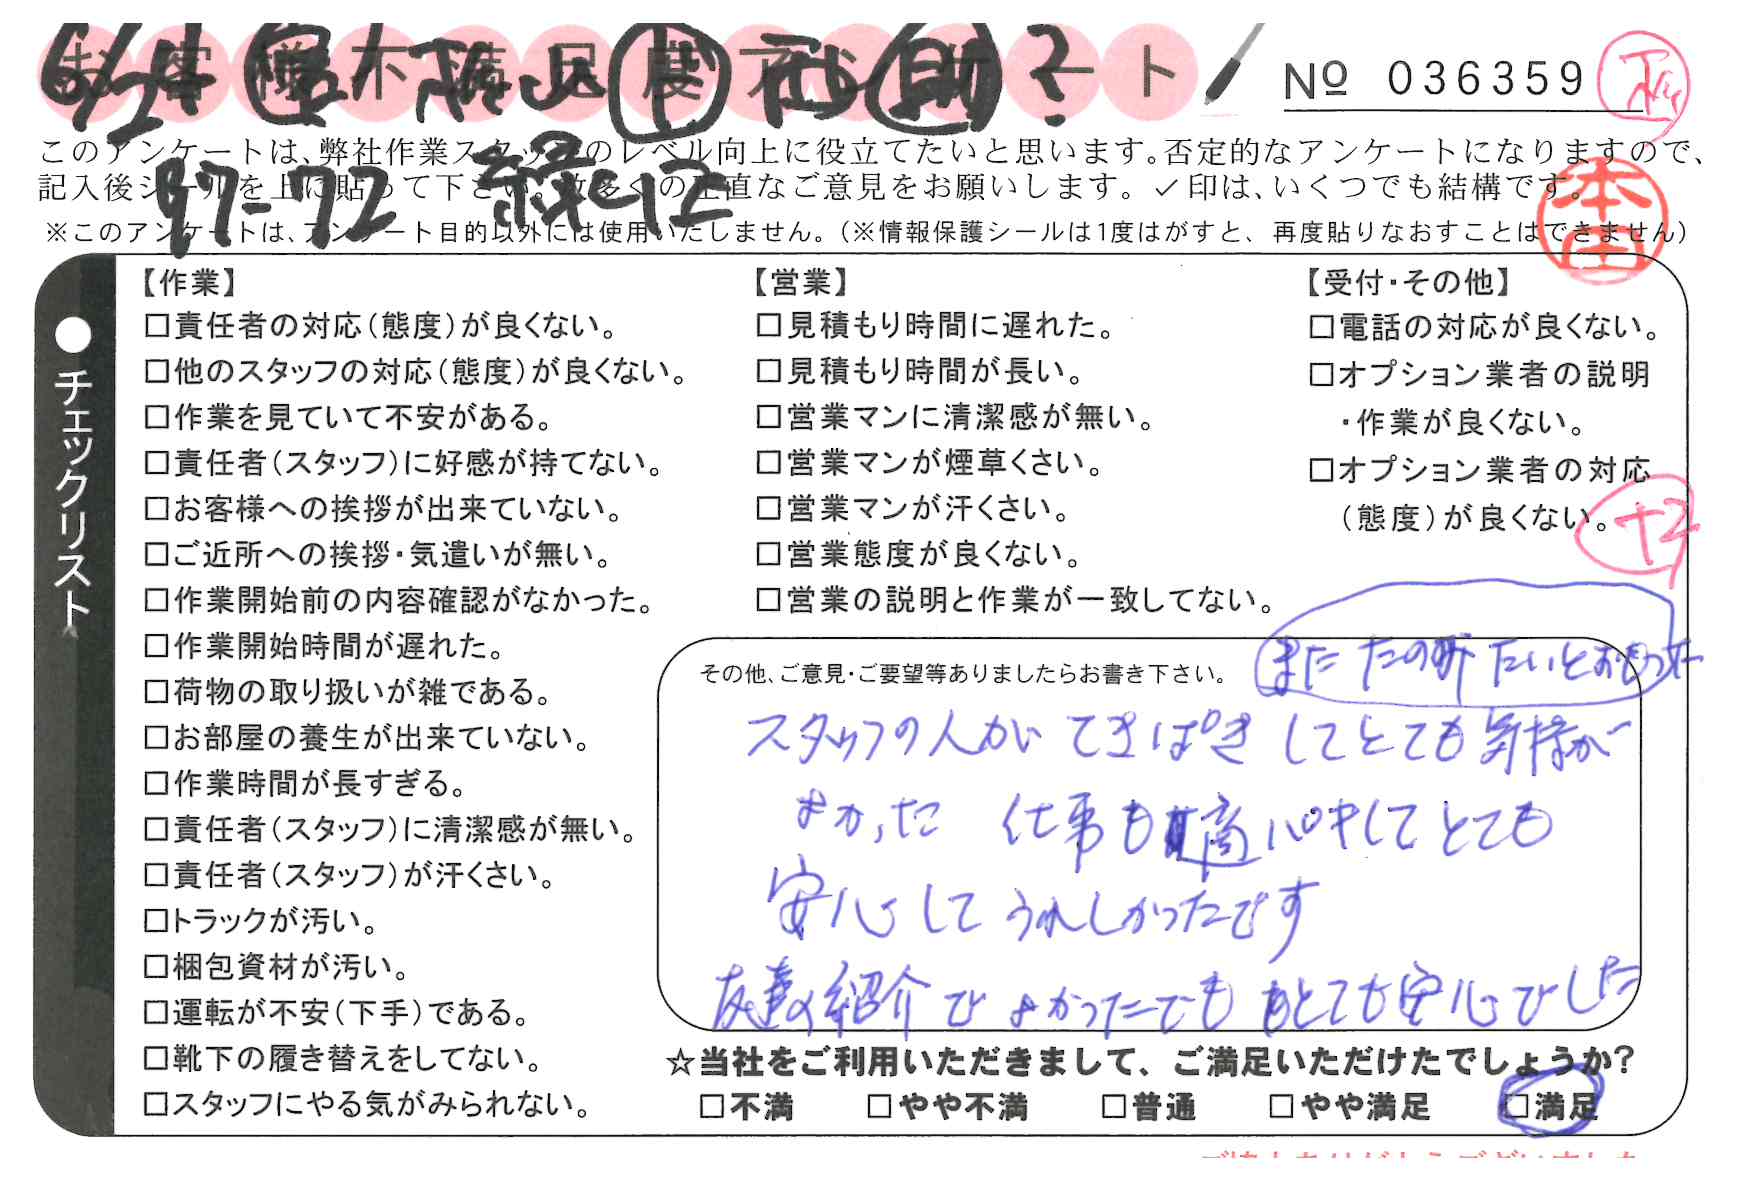 お客様不満足度アンケート
6/24
№ 036359
このアンケートは、弊社作業スタッフのレベル向上に役立てたいと思います。否定的なアンケートになりますので、
記入後シールを上に貼って下さい。数多くの正直なご意見をお願いします。✓印は、いくつでも結構です。
97-72 緑C12
※このアンケートは、アンケート目的以外には使用いたしません。(※情報保護シールは1度はがすと、再度貼りなおすことはできません)
本田
●チェックリスト
【作業】
□責任者の対応(態度)が良くない。
□他のスタッフの対応(態度)が良くない。
□作業を見ていて不安がある。
□責任者(スタッフ)に好感が持てない。
□お客様への挨拶が出来ていない。
□ご近所への挨拶・気遣いが無い。
□作業開始前の内容確認がなかった。
□作業開始時間が遅れた。
□荷物の取り扱いが雑である。
□お部屋の養生が出来ていない。
□作業時間が長すぎる。
□責任者(スタッフ)に清潔感が無い。
□責任者(スタッフ)が汗くさい。
□トラックが汚い。
□梱包資材が汚い。
□運転が不安(下手)である。
□靴下の履き替えをしてない。
□スタッフにやる気がみられない。
【営業】
□見積もり時間に遅れた。
□見積もり時間が長い。
□営業マンに清潔感が無い。
□営業マンが煙草くさい。
□営業マンが汗くさい。
□営業態度が良くない。
□営業の説明と作業が一致してない。
【受付・その他】
□電話の対応が良くない。
□オプション業者の説明
・作業が良くない。
□オプション業者の対応
(態度)が良くない。
+2
その他、ご意見・ご要望等ありましたらお書き下さい。
またたのみたいとおもった
スタッフの人がてきぱきしてとても気持が
よかった 仕事も適心中してとても
安心してうれしかったです
友達の紹介でよかったでもとても安心でした
☆当社をご利用いただきまして、ご満足いただけたでしょうか?
□不満 □やや不満 □普通 □やや満足 □満足
ご協力ありがとうございました